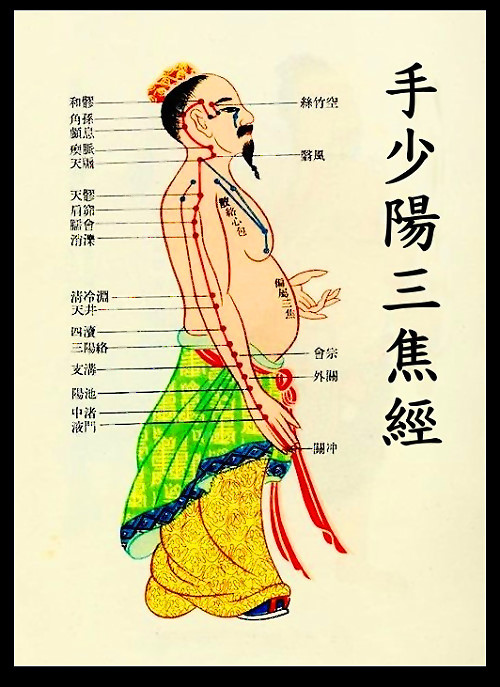 手少陽三焦經
和髎
角孫
顱息
瘈脈
天牖
天髎
肩髎
臑會
消濼
清冷淵
天井
四瀆
三陽絡
支溝
陽池
中渚
液門
絲竹空
翳風
散絡心包
偏屬三焦
會宗
外關
關冲